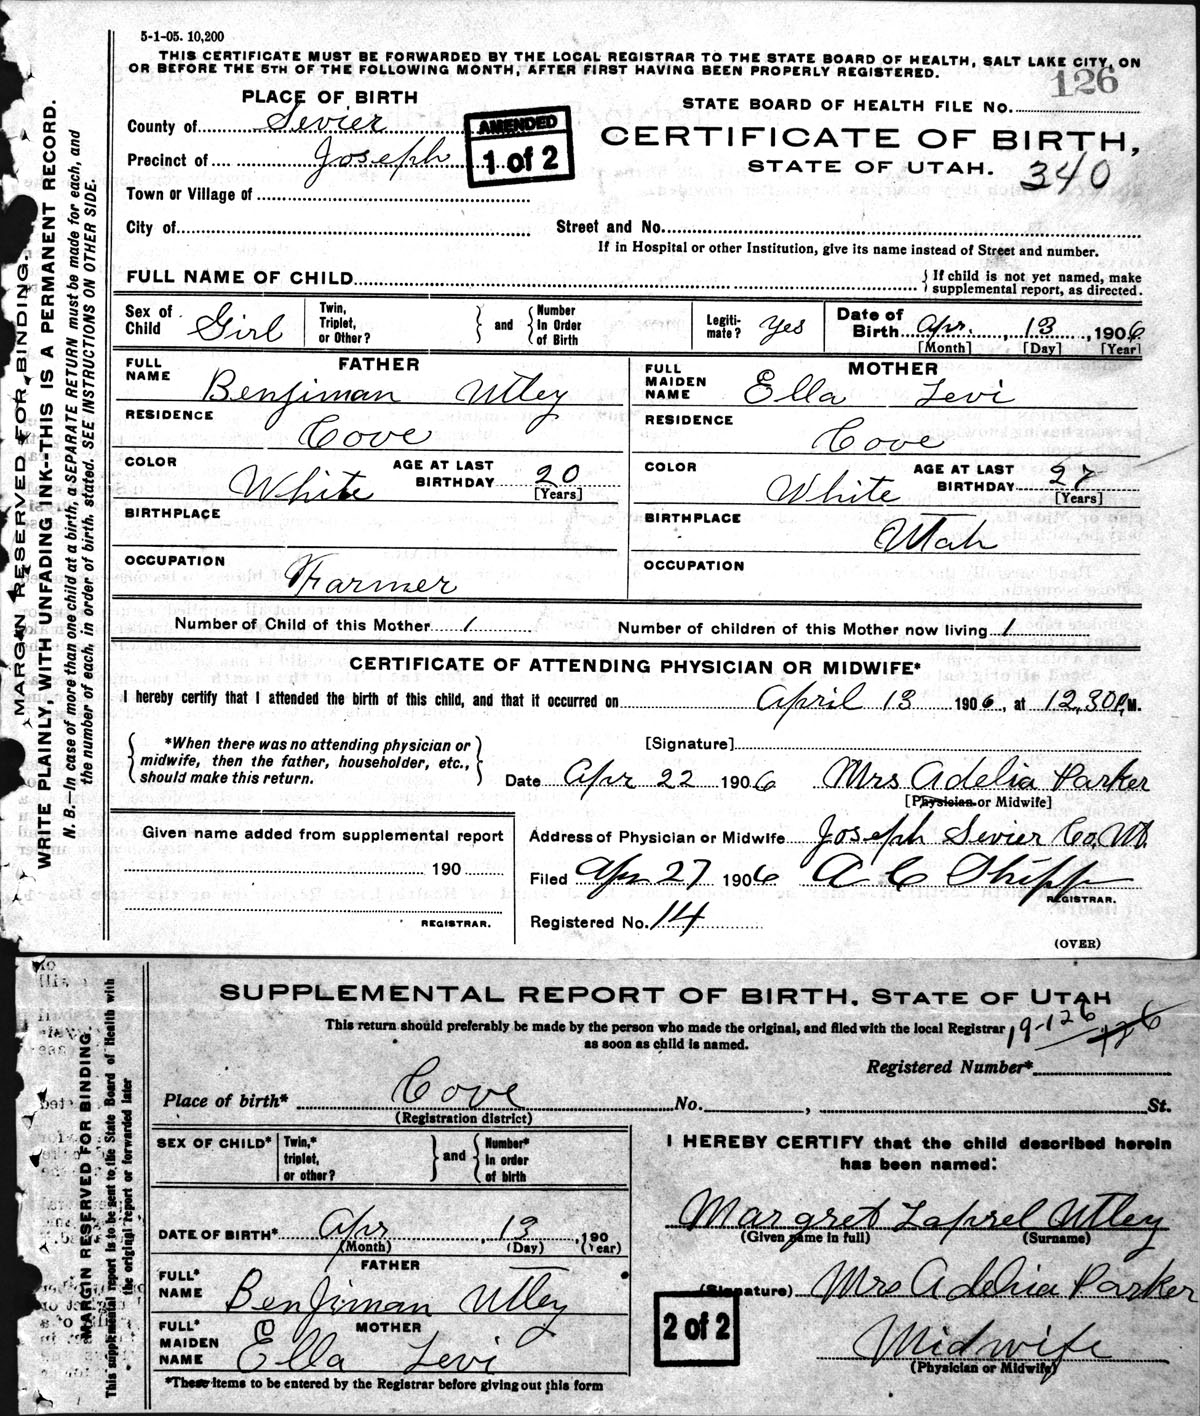 5-1-05. 10,200
THIS CERTIFICATE MUST BE FORWARDED BY THE LOCAL REGISTRAR TO THE STATE BOARD OF HEALTH, SALT LAKE CITY, ON
OR BEFORE THE 5TH OF THE FOLLOWING MONTH, AFTER FIRST HAVING BEEN PROPERLY REGISTERED.
126
PLACE OF BIRTH
STATE BOARD OF HEALTH FILE NO.
County of Sevier
AMENDED
1 of 2
CERTIFICATE OF BIRTH,
Precinct of Joseph
STATE OF UTAH. 340
Town or Village of
City of
Street and No.
If in Hospital or other Institution, give its name instead of Street and number.
FULL NAME OF CHILD
{ If child is not yet named, make
supplemental report, as directed.
Sex of Child Girl
Twin, Triplet, or Other? } and { Number In Order of Birth
Legiti-mate? Yes
Date of Birth Apr. 13, 1906
[Month] [Day] [Year]
FATHER
FULL NAME Benjiman Utley
MOTHER
FULL MAIDEN NAME Ella Levi
RESIDENCE Cove
RESIDENCE Cove
COLOR White AGE AT LAST BIRTHDAY 20 [Years]
COLOR White AGE AT LAST BIRTHDAY 27 [Years]
BIRTHPLACE
BIRTHPLACE Utah
OCCUPATION Farmer
OCCUPATION
Number of Child of this Mother 1
Number of children of this Mother now living 1
CERTIFICATE OF ATTENDING PHYSICIAN OR MIDWIFE*
I hereby certify that I attended the birth of this child, and that it occurred on April 13 1906, at 12,30 P.M.
{ *When there was no attending physician or
midwife, then the father, householder, etc.,
should make this return. }
[Signature]
Date Apr 22 1906 Mrs Adelia Parker
[Physician or Midwife]
Given name added from supplemental report
190
REGISTRAR.
Address of Physician or Midwife Joseph Sevier Co, Ut.
Filed Apr 27 1906 A C Shipp
REGISTRAR.
Registered No. 14
(OVER)
MARGIN RESERVED FOR BINDING.
WRITE PLAINLY, WITH UNFADING INK--THIS IS A PERMANENT RECORD.
N. B.—In case of more than one child at a birth, a SEPARATE RETURN must be made for each, and
the number of each, in order of birth, stated. SEE INSTRUCTIONS ON OTHER SIDE.
SUPPLEMENTAL REPORT OF BIRTH, STATE OF UTAH
This return should preferably be made by the person who made the original, and filed with the local Registrar
as soon as child is named.
19-126 126
Registered Number*
Place of birth* Cove No. , St.
(Registration district)
SEX OF CHILD*
Twin,* triplet, or other? } and { Number* In order of birth
I HEREBY CERTIFY that the child described herein
has been named:
DATE OF BIRTH* Apr , 13 , 190
(Month) (Day) (Year)
Margret Laprel Utley
(Given name in full) (Surname)
FATHER
FULL* NAME Benjiman Utley
(Signature) Mrs Adelia Parker
2 of 2
MOTHER
FULL* MAIDEN NAME Ella Levi
Midwife
(Physician or Midwife)
*These items to be entered by the Registrar before giving out this form
MARGIN RESERVED FOR BINDING
This supplemental report is to be sent to the State Board of Health with
the original report or forwarded later